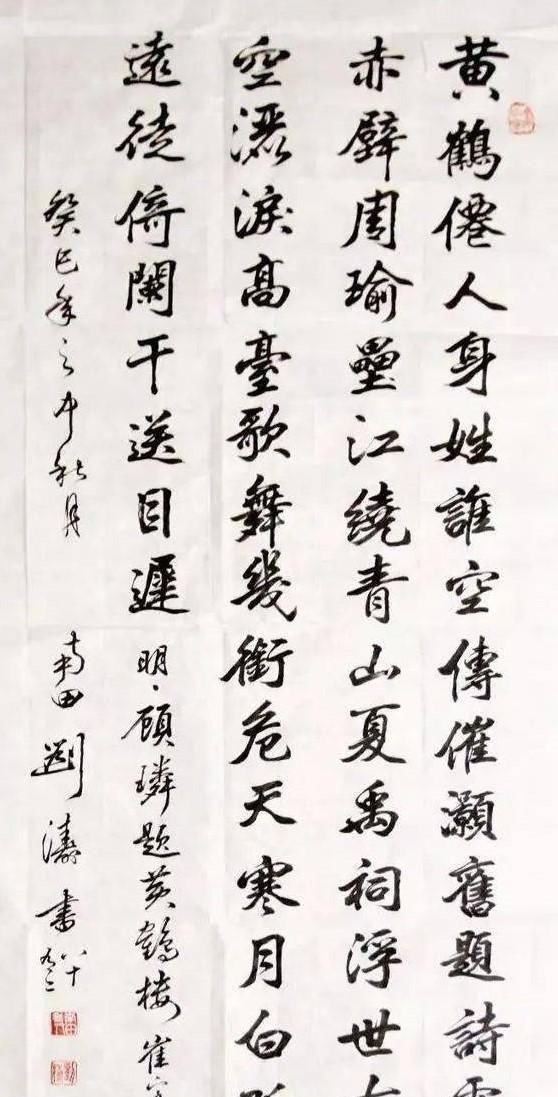 黄鶴僊人身姓誰空傳催灝舊題詩
赤壁周瑜壘江繞青山夏禹祠浮世
空灑淚高臺歌舞幾銜危天寒月白
遠徒倚闌干送目遲
明·顾璘题黄鶴楼崔
癸巳年之中秋月
南田
濤書
八十